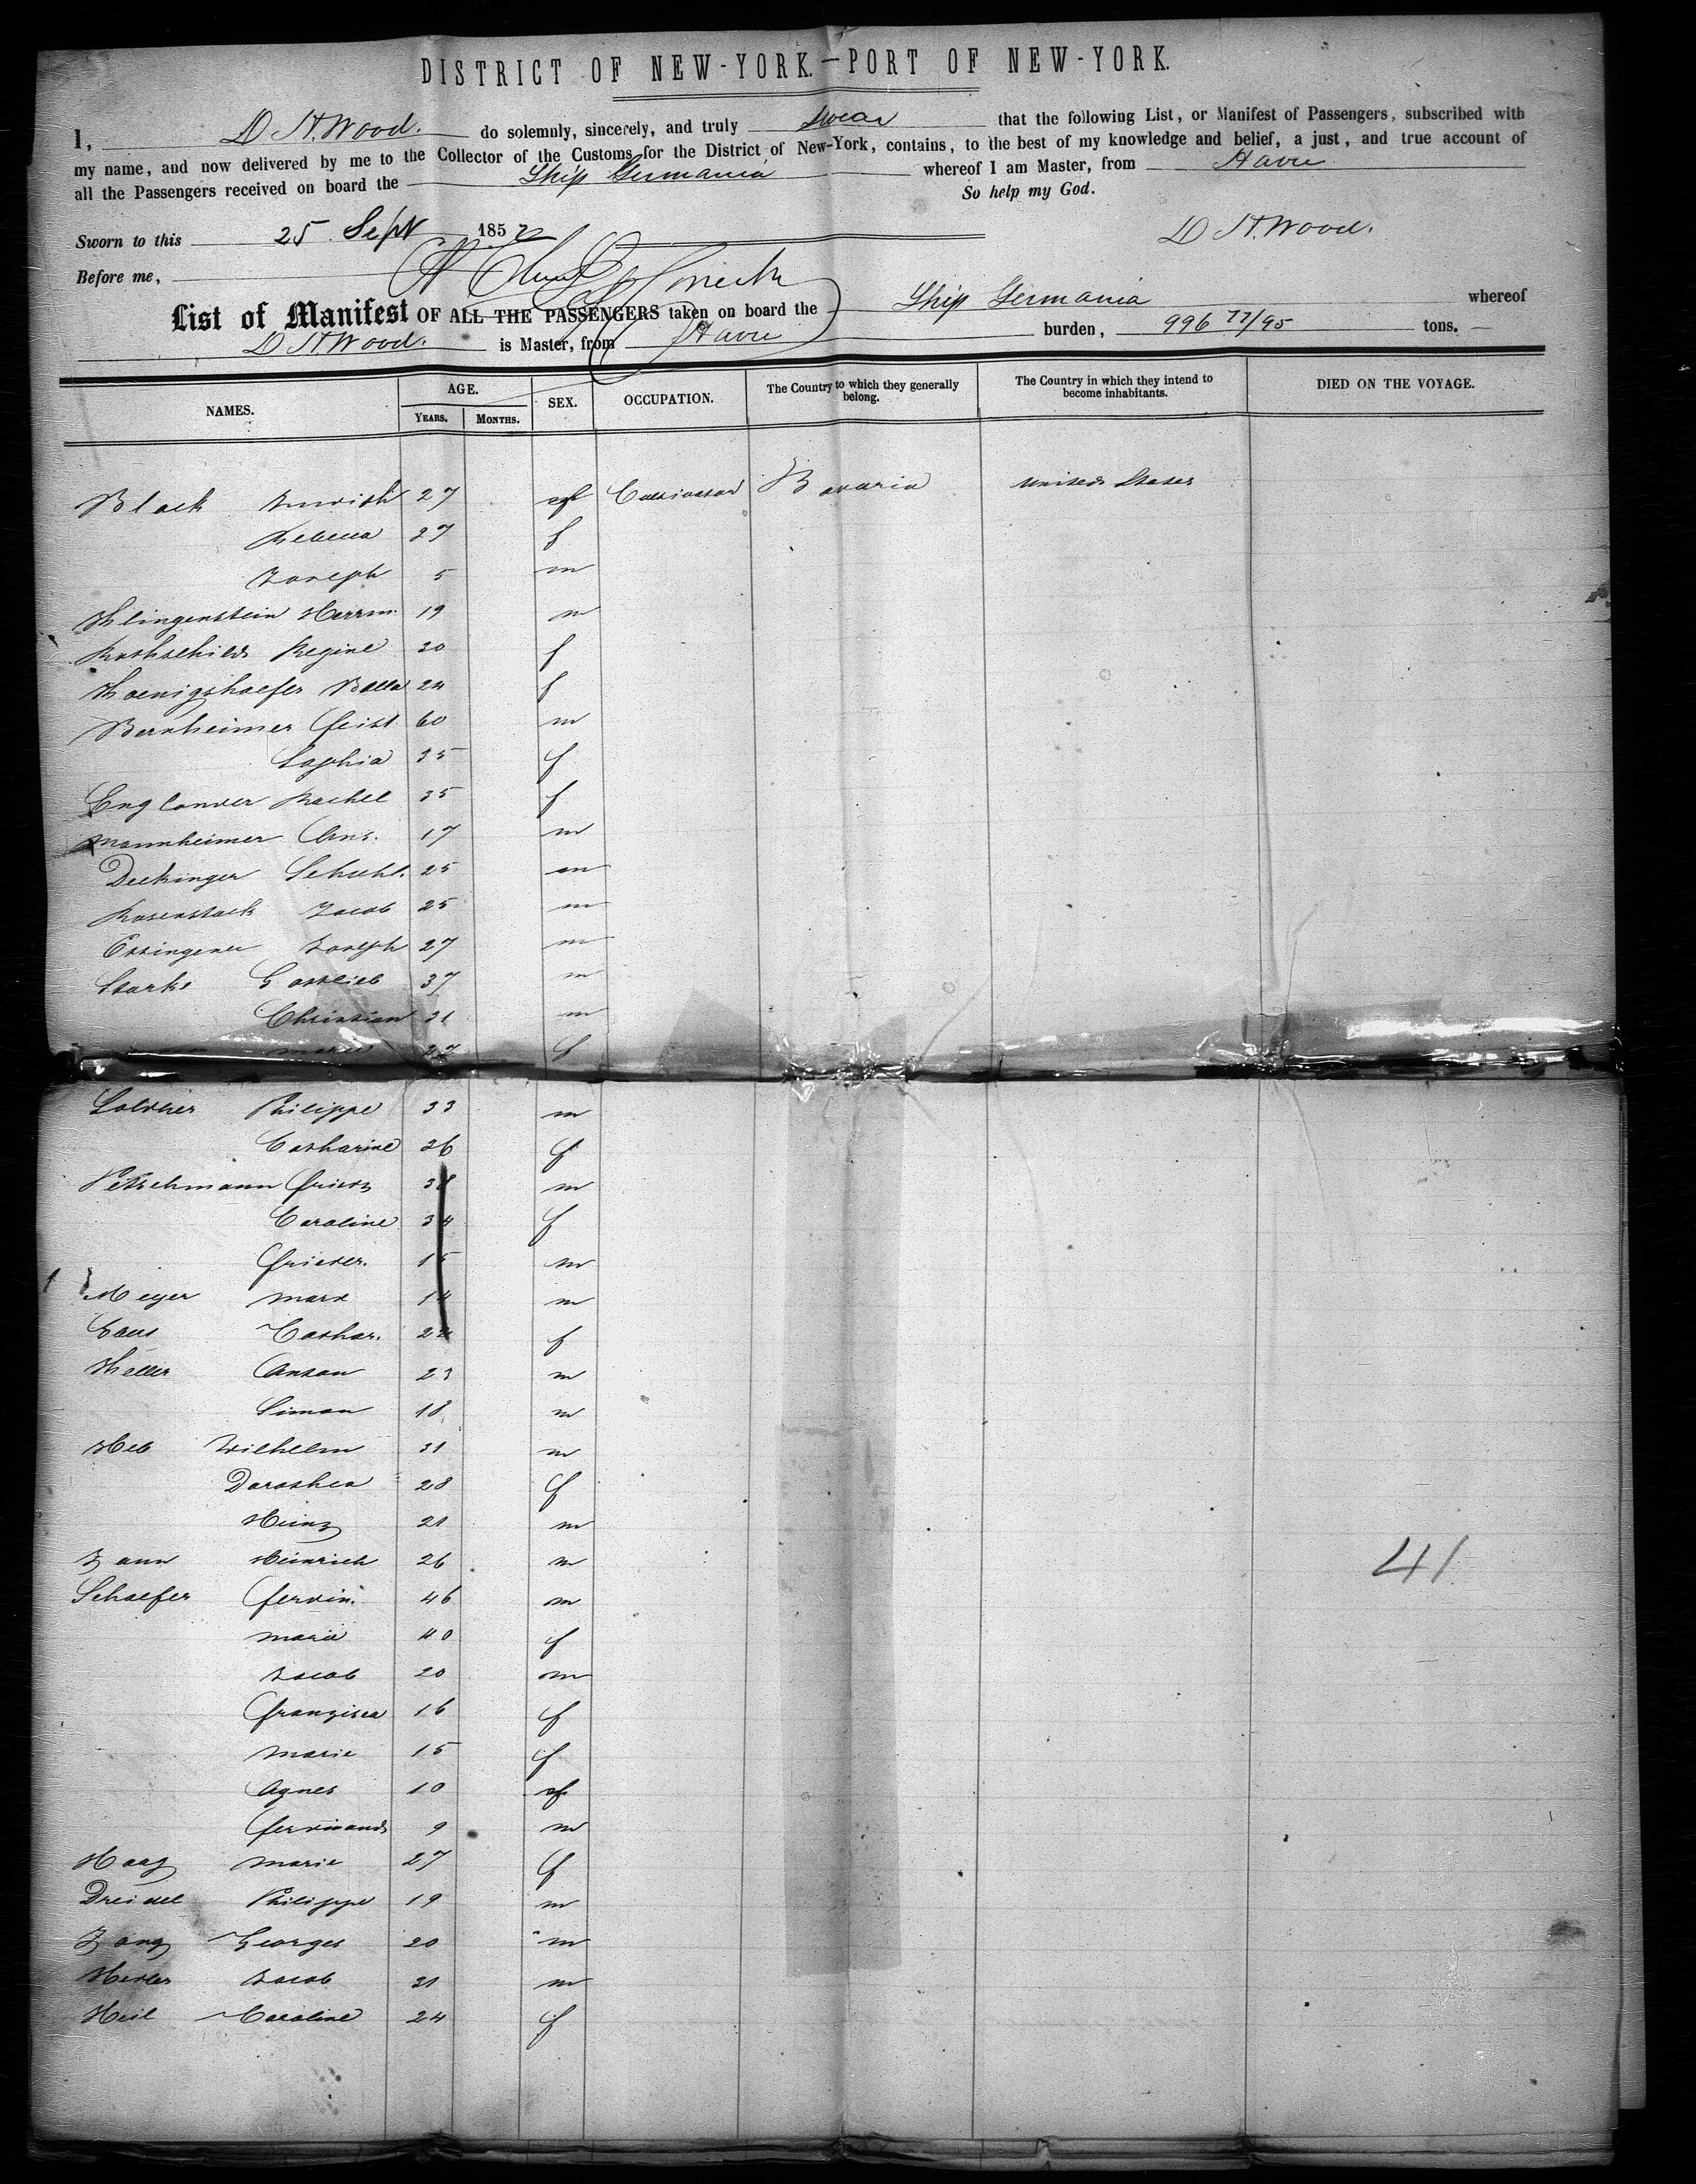 DISTRICT OF NEW-YORK.—PORT OF NEW-YORK.
I, D H. Wood. do solemnly, sincerely, and truly swear that the following List, or Manifest of Passengers, subscribed with
my name, and now delivered by me to the Collector of the Customs for the District of New-York, contains, to the best of my knowledge and belief, a just, and true account of
all the Passengers received on board the Ship Germania whereof I am Master, from Havre
So help my God.
Sworn to this 25 Sept 1852
D H. Wood.
Before me,
List of Manifest OF ALL THE PASSENGERS taken on board the Ship Germania whereof
D H. Wood. is Master, from Havre burden, 996 77/95 tons.
NAMES. AGE. YEARS. MONTHS. SEX. OCCUPATION. The Country to which they generally belong. The Country in which they intend to become inhabitants. DIED ON THE VOYAGE.
Black 27 Bavaria United States
Rebecca 27 f
Joseph 5 m
Klingenstein Herrm. 19 m
Rothschild Regine 20 f
Koenigshoefer Bella 24 f
Bernheimer Feist 60 m
Sophia 35 f
Englander Rachel 35 f
Mannheimer Ans. 17 m
Deckinger Schuhl. 25 m
Rosenstock Jacob 25 m
Essinger Joseph 27 m
Starke Gottlieb 37 m
Christian 31 m
f
Soldner Philippe 33 m
Catharine 26 f
Petschmann Friedr 38 m
Caroline 34 f
Frieder. 15 m
Meyer Marx 14 m
Cathar. f
Keller Anton 23 m
Simon 18 m
Heb Wilhelm 31 m
Dorothea 28 f
Heinr 21 m
Zann Heinrich 26 m
Schaefer Ferdin. 46 m
Marie 40 f
41
Jacob 20 m
Franzisca 16 f
Marie 15 f
Agnes 10 f
Ferdinand 9 m
Haag Marie 27 f
Dreidel Philippe 19 m
Zang Georges 20 m
Jacob 21 m
Heil Caroline 24 f